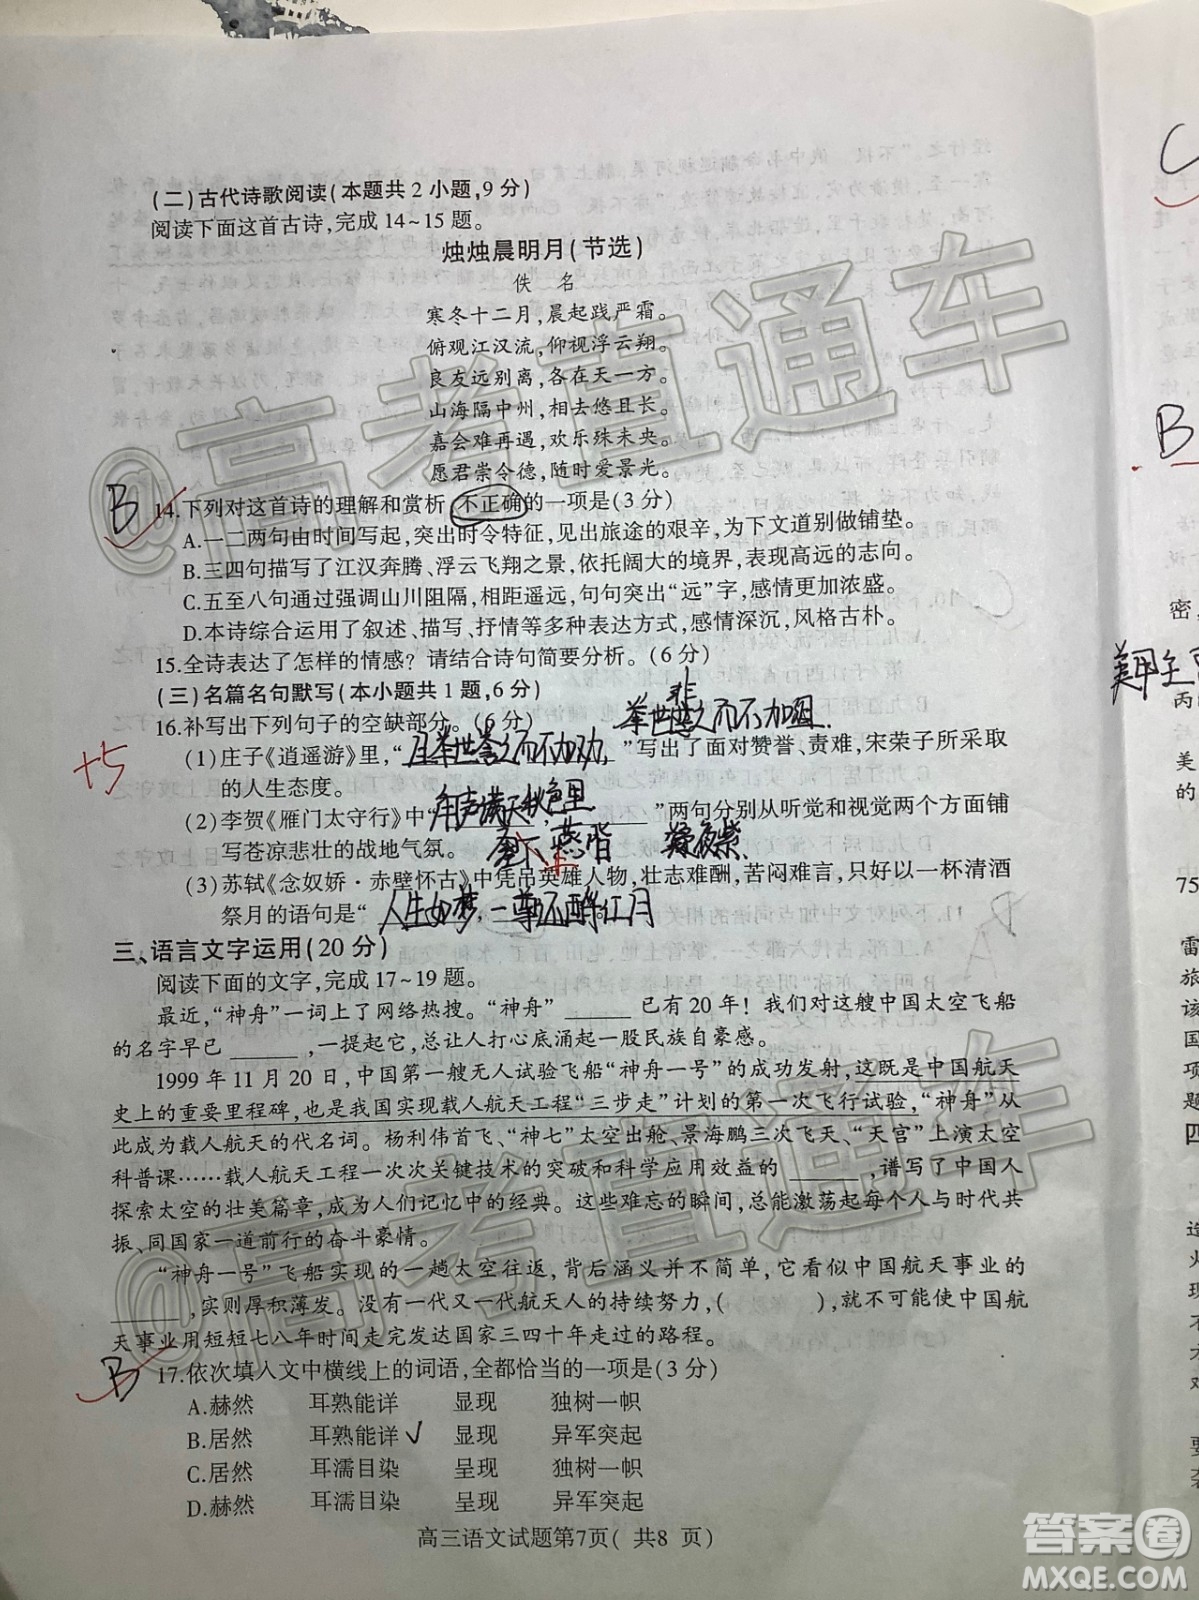 (二)古代诗歌阅读(本题共2小题,9分)
阅读下面这首古诗,完成14~15题。
烛烛晨明月(节选)
佚 名
寒冬十二月,晨起践严霜。
俯观江汉流,仰视浮云翔。
良友远别离,各在天一方。
山海隔中州,相去悠且长。
嘉会难再遇,欢乐殊未央。
愿君崇令德,随时爱景光。
B
14.下列对这首诗的理解和赏析 不正确的一项是(3分)
A.一二两句由时间写起,突出时令特征,见出旅途的艰辛,为下文道别做铺垫。
B.三四句描写了江汉奔腾、浮云飞翔之景,依托阔大的境界,表现高远的志向。
C.五至八句通过强调山川阻隔,相距遥远,句句突出“远”字,感情更加浓盛。
D.本诗综合运用了叙述、描写、抒情等多种表达方式,感情深沉,风格古朴。
15.全诗表达了怎样的情感?请结合诗句简要分析。(6分)
(三)名篇名句默写(本小题共1题,6分)
16.补写出下列句子的空缺部分。(6分)
举世非之而不加沮.
+5
(1)庄子《逍遥游》里,“且举世誉之而不加劝, ”写出了面对赞誉、责难,宋荣子所采取
的人生态度。
(2)李贺《雁门太守行》中“角声满天秋色里, ”两句分别从听觉和视觉两个方面铺
写苍凉悲壮的战地气氛。
塞 燕脂 凝夜紫
(3)苏轼《念奴娇·赤壁怀古》中凭吊英雄人物,壮志难酬,苦闷难言,只好以一杯清酒
祭月的语句是“人生如梦,一尊还酹江月
三、语言文字运用(20分)
阅读下面的文字,完成17~19题。
最近,“神舟”一词上了网络热搜。“神舟” ______ 已有20年!我们对这艘中国太空飞船
的名字早已 ______ ,一提起它,总让人打心底涌起一股民族自豪感。
1999年11月20日,中国第一艘无人试验飞船“神舟一号”的成功发射,这既是中国航天
史上的重要里程碑,也是我国实现载人航天工程“三步走”计划的第一次飞行试验,“神舟”从
此成为载人航天的代名词。杨利伟首飞、“神七”太空出舱、景海鹏三次飞天、“天宫”上演太空
科普课……载人航天工程一次次关键技术的突破和科学应用效益的 ______ ,谱写了中国人
探索太空的壮美篇章,成为人们记忆中的经典。这些难忘的瞬间,总能激荡起每个人与时代共
振、同国家一道前行的奋斗豪情。
“神舟一号”飞船实现的一趟太空往返,背后涵义并不简单,它看似中国航天事业的
______ ,实则厚积薄发。没有一代又一代航天人的持续努力,( ),就不可能使中国航
天事业用短短七八年时间走完发达国家三四十年走过的路程。
B
17.依次填入文中横线上的词语,全都恰当的一项是(3分)
A.赫然 耳熟能详 显现 独树一帜
B.居然 耳熟能详 ✓ 显现 异军突起
C.居然 耳濡目染 呈现 独树一帜
D.赫然 耳濡目染 呈现 异军突起
高三语文试题第7页( 共8 页)
@高考直通车
@高考直通车
B
密,
丙
美
的
中
75
雷
旅
该
国
项
题
四
要
答案圈
MXQE.COM